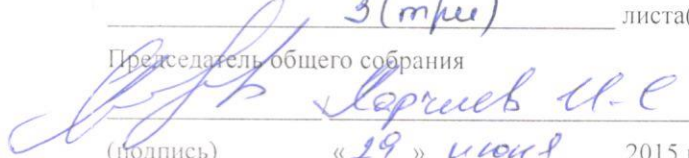 3 (три) листа(
Председатель общего собрания
И.С
(подпись) « 29 » июня 2015